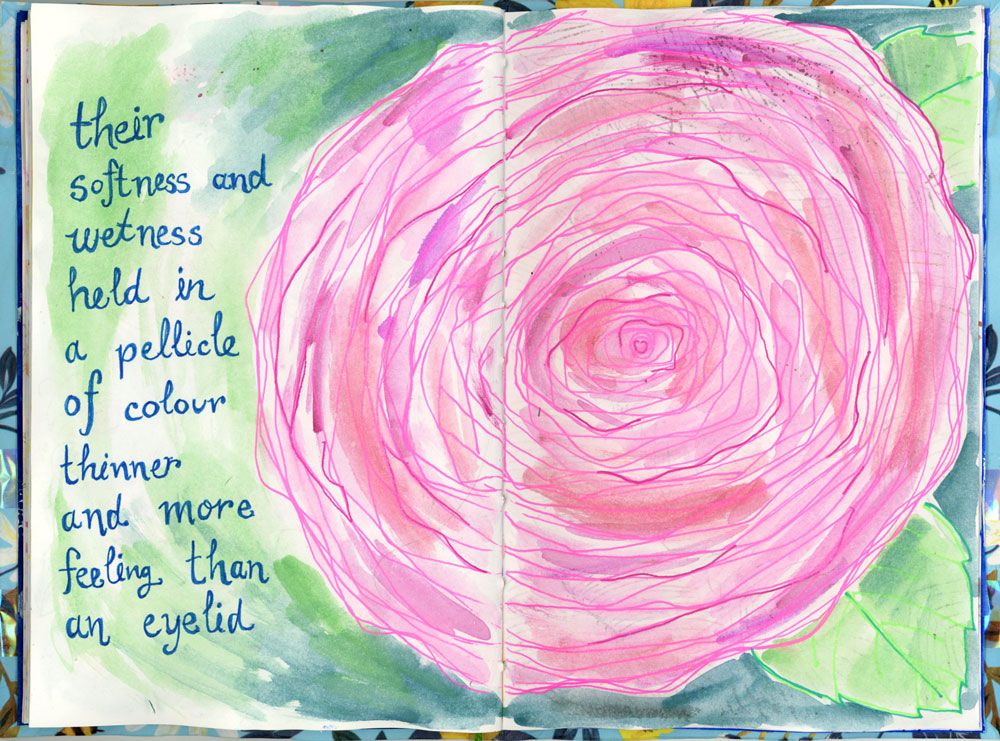 their
softness and
wetness
held in
a pellicle
of colour
thinner
and more
feeling than
an eyelid